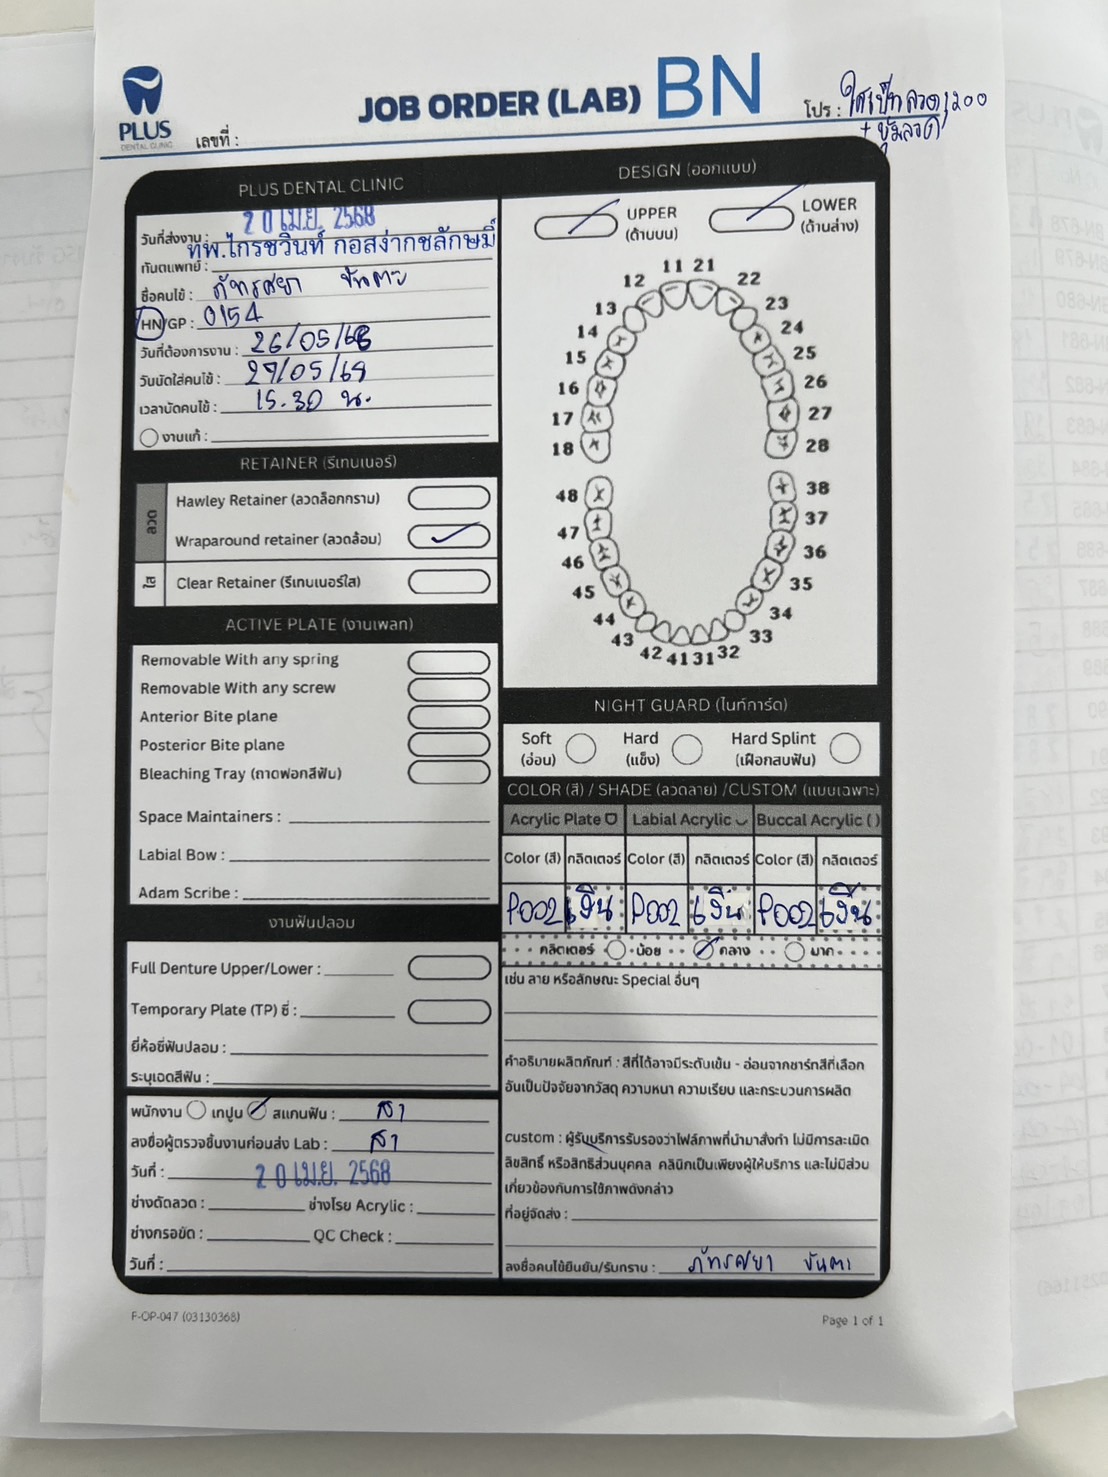 PLUS
DENTAL CLINIC
เลขที่ :
JOB ORDER (LAB) BN
โปร : ใส่เป็นลวด 1200
PLUS DENTAL CLINIC
วันที่ส่งงาน : 20 เม.ย. 2568
ทันตแพทย์ : ทพ.ไกรชวินท์ กอสง่ากชลักษมิ์
ชื่อคนไข้ : ภัทรศยา
HN/GP : 0154
วันที่ต้องการงาน : 26/05/68
วันนัดใส่คนไข้ : 27/05/68
เวลานัดคนไข้ : 15.30 น.
งานแก้ :
RETAINER (รีเทนเนอร์)
ลวด
Hawley Retainer (ลวดล็อกกราม)
Wraparound retainer (ลวดล้อม)
ใส
Clear Retainer (รีเทนเนอร์ใส)
ACTIVE PLATE (งานเพลท)
Removable With any spring
Removable With any screw
Anterior Bite plane
Posterior Bite plane
Bleaching Tray (ถาดฟอกสีฟัน)
Space Maintainers :
Labial Bow :
Adam Scribe :
งานฟันปลอม
Full Denture Upper/Lower :
Temporary Plate (TP) ซี่ :
ยี่ห้อซี่ฟันปลอม :
ระบุเฉดสีฟัน :
พนักงาน เทปูน สแกนฟัน : สา
ลงชื่อผู้ตรวจชิ้นงานก่อนส่ง Lab : สา
วันที่ : 20 เม.ย. 2568
ช่างดัดลวด : ช่างโรย Acrylic :
ช่างกรอขัด : QC Check :
วันที่ :
DESIGN (ออกแบบ)
UPPER
(ด้านบน)
LOWER
(ด้านล่าง)
11 21
12 22
13 23
14 24
15 25
16 26
17 27
18 28
48 38
47 37
46 36
45 35
44 34
43 33
42 41 31 32
NIGHT GUARD (ไนท์การ์ด)
Soft
(อ่อน)
Hard
(แข็ง)
Hard Splint
(เฝือกสบฟัน)
COLOR (สี) / SHADE (ลวดลาย) /CUSTOM (แบบเฉพาะ)
Acrylic Plate Labial Acrylic Buccal Acrylic ( )
Color (สี) กลิตเตอร์ Color (สี) กลิตเตอร์ Color (สี) กลิตเตอร์
P002 เงิน P002 เงิน P002 เงิน
กลิตเตอร์ น้อย กลาง มาก
เช่น ลาย หรือลักษณะ Special อื่นๆ
คำอธิบายผลิตภัณฑ์ : สีที่ได้อาจมีระดับเข้ม - อ่อนจากชาร์ทสีที่เลือก
อันเป็นปัจจัยจากวัสดุ ความหนา ความเรียบ และกระบวนการผลิต
custom : ผู้รับบริการรับรองว่าไฟล์ภาพที่นำมาสั่งทำ ไม่มีการละเมิด
ลิขสิทธิ์ หรือสิทธิส่วนบุคคล คลินิกเป็นเพียงผู้ให้บริการ และไม่มีส่วน
เกี่ยวข้องกับการใช้ภาพดังกล่าว
ที่อยู่จัดส่ง :
ลงชื่อคนไข้ยืนยัน/รับทราบ : ภัทรศยา
F-OP-047 (03130368)
Page 1 of 1